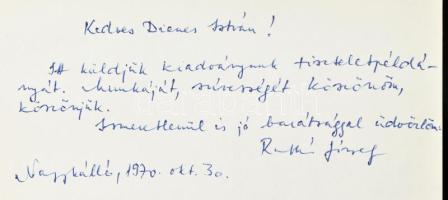 Kedves Dienes István!
Itt küldjük kiadványunk tiszteletpéldá-
nyát. Munkáját, szívességét köszönöm,
köszönjük.
Ismeretlenül is jó barátsággal üdvözlöm
Ratkó József
Nagykálló, 1970. okt. 30.